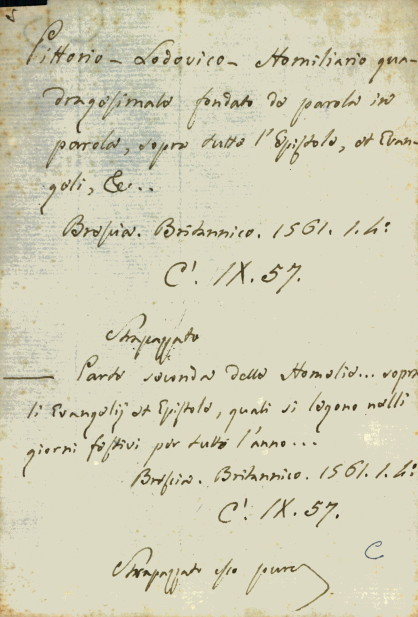 Pittorio - Lodovico - Homiliario qua-
dragesimale fondato de parola in
parola, sopra tutte l'Epistole, et Evan-
geli, &c..
Brescia. Britannico. 1561. 1. 4:
C'. IX. 57.
Strapazzato
— Parte seconda delle Homelie... sopra
li Evangelij et Epistole, quali si legono nelli
giorni festivi per tutto l'anno...
Brescia. Britannico. 1561. 1. 4:
C'. IX. 57.
C
Strapazzato esso pure